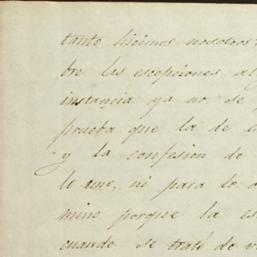 tanto hicimos nosotros
bre las escepciones
instancia ya no se
prueba que la de
y la confesion de
ni para lo
mino porque la es
cuando se trató de